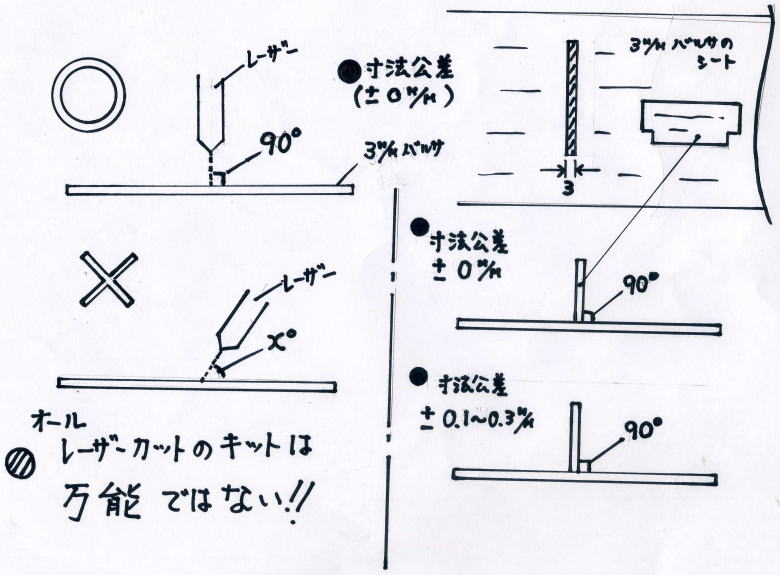 レーザー
90°
● 寸法公差
(± 0 m/m)
3m/m バルサ
レーザー
x°
オール
レーザーカットのキットは
万能ではない!!
3m/m バルサの
シート
3
● 寸法公差
± 0 m/m
90°
● 寸法公差
± 0.1〜0.3 m/m
90°